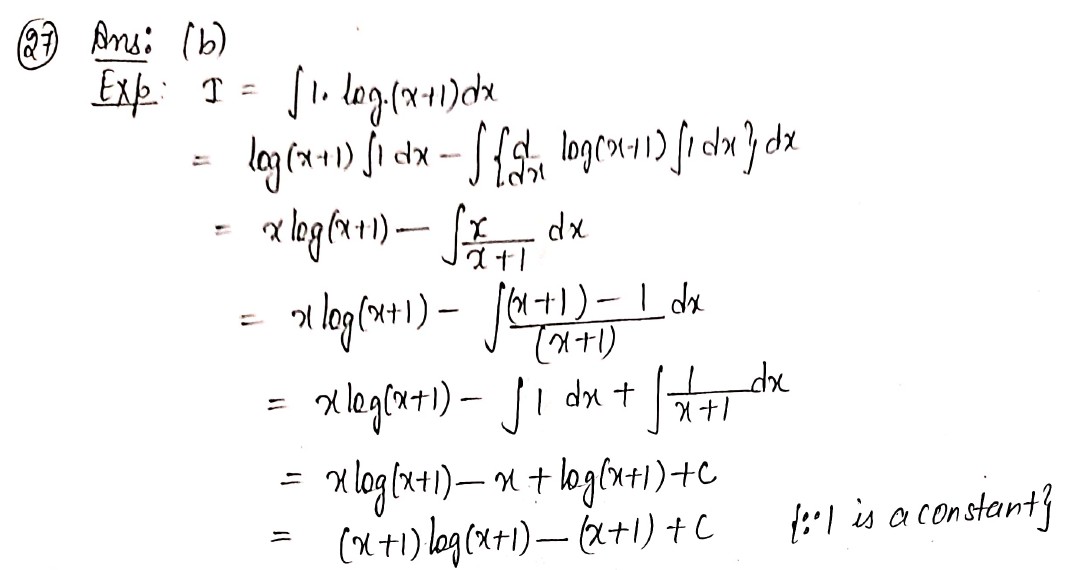 (27) Ans: (b)
Exp: I = ∫1. log.(x+1)dx
= log(x+1) ∫1 dx - ∫{d/dx log(x+1) ∫1 dx} dx
= x log(x+1) - ∫x/(x+1) dx
= x log(x+1) - ∫((x+1) - 1)/(x+1) dx
= x log(x+1) - ∫1 dx + ∫1/(x+1) dx
= x log(x+1) - x + log(x+1) + C
= (x+1) log(x+1) - (x+1) + C {∵1 is a constant}